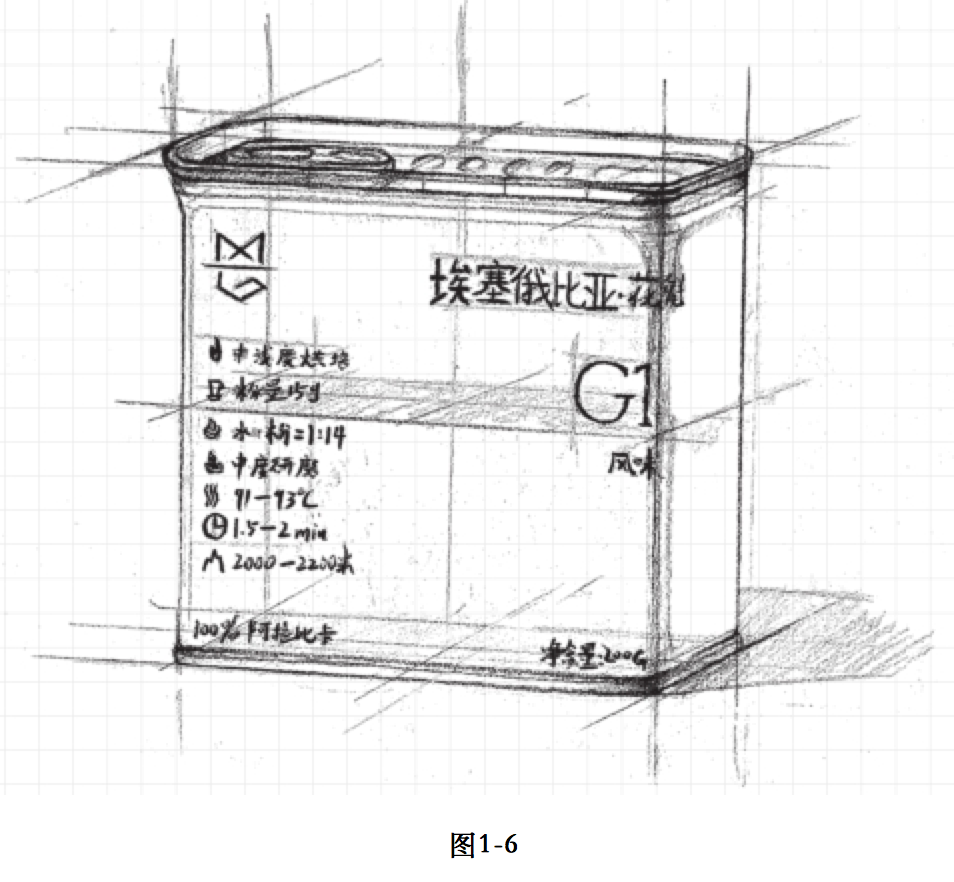 埃塞俄比亚·花魁
中浅度烘培
G1
粉量15g
水:粉=1:14
中度研磨
风味
91-93℃
1.5-2min
2000-2200米
100%阿拉比卡
净含量:200G
图1-6